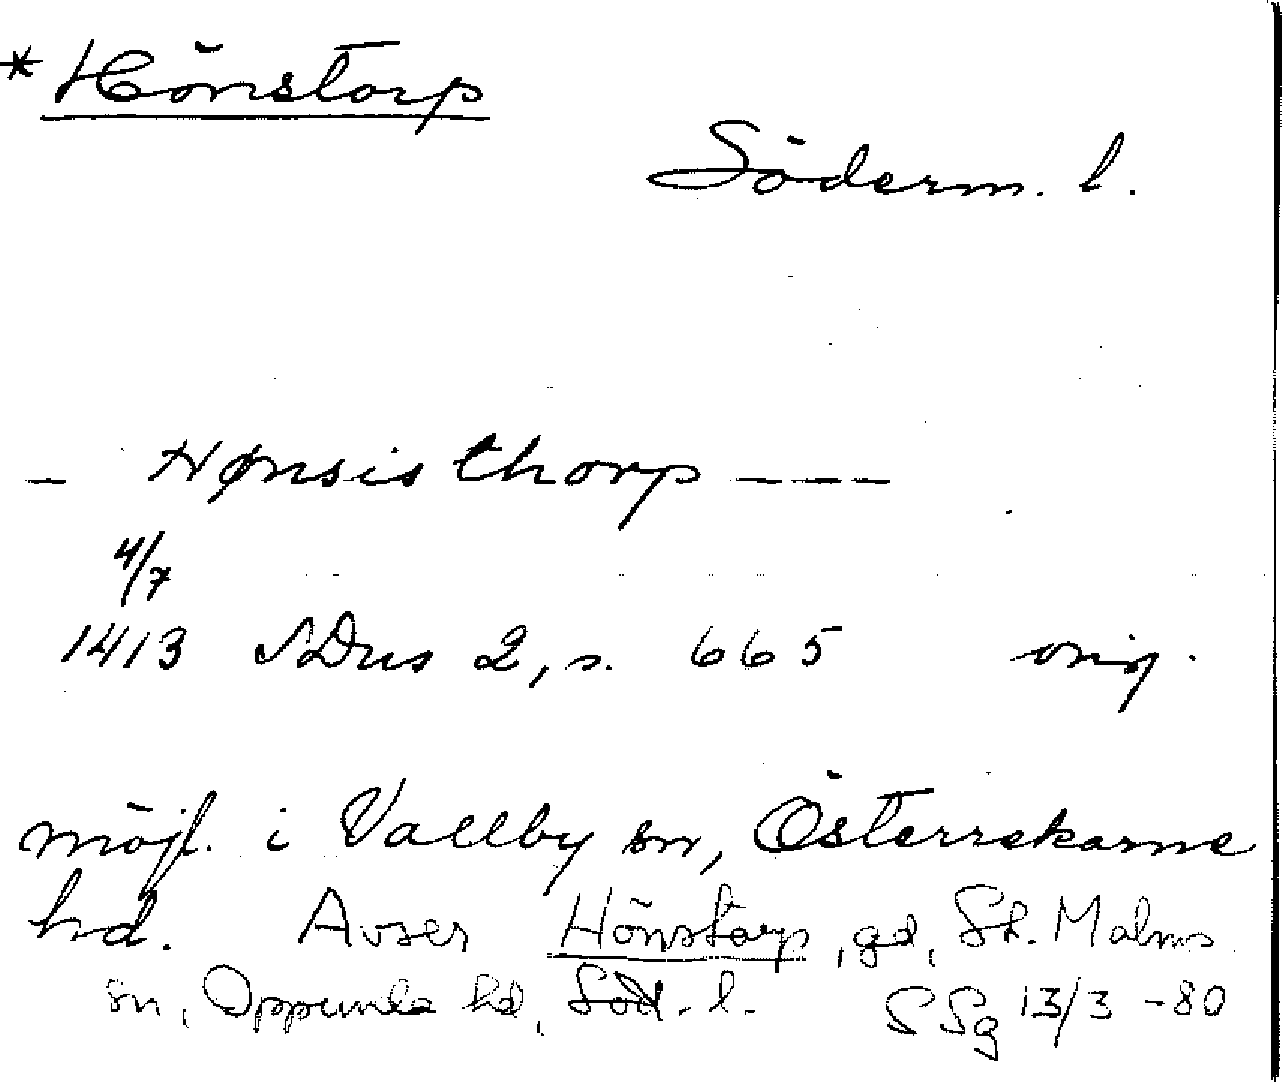 * Hönstorp
Söderm. l.
– Hønsisthorp – – –
4/7
1413 SDns 2, s. 665 orig.
möjl. i Vallby sn, Österrekarne
hd. Avser Hönstorp, gd, St. Malms
sn, Oppunda hd, Söd. l. SSg 13/3 -80